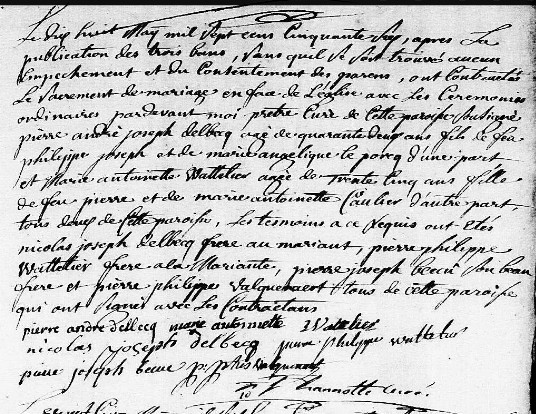 Le dix huit May mil sept cens Cinquante Six, apres La
publication des trois bans, Sans quil Se Soit trouvé aucun
Empechement et du Contentement des parens, ont Contractés
Le Sacrement de mariage en face de L'eglise avec Les Ceremonies
ordinaires pardevant moi pretre Curé de Cette paroisse Soussigné
pierre andré joseph delbecq agé de quarante deux ans fils de feu
philippe joseph et de marie angelique le porcq d'une part
et Marie antoinette Wattelier agée de trente Cinq ans fille
de feu pierre et de marie antoinette Caulier d'autre part
tous deux de Cette paroisse, Les temoins a ce Requis ont Etés
nicolas joseph delbecq frere au mariant, pierre philippe
Wattelier frere a la Mariante, pierre joseph Son beau
frere et pierre philippe valquenaert tous de cette paroisse
qui ont Signés avec Les Contractans
pierre andre delbecq marie antoinette Wattelier
nicolas joseph delbecq pierre philippe Wattelier
pierre joseph
Curé.